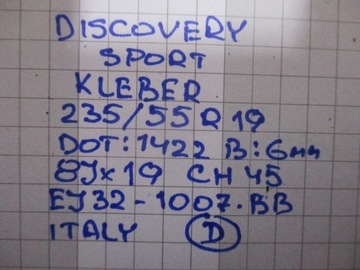 DISCOVERY
SPORT
KLEBER
235/55 R 19
DOT: 1422 B: 6mm
8Jx19 CH 45
EJ32-1007.BB
ITALY D